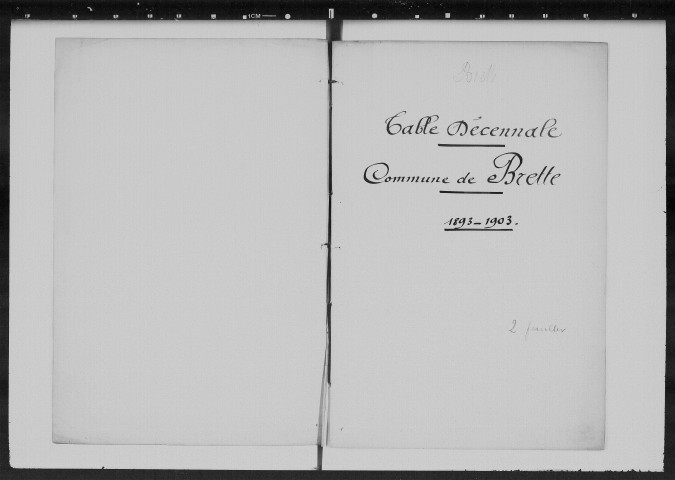 1CM
Brette
Table Décennale
Commune de Brette
1893-1903.
2 feuilles